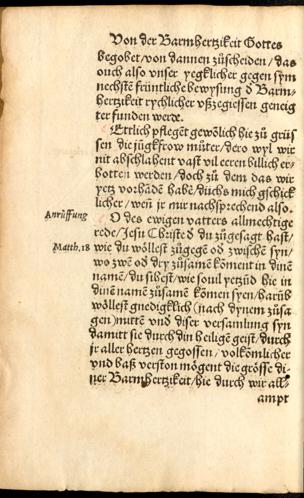 Von der Barmhertzikeit Gottes
begobet/von dannen zůscheiden/das
ouch also vnser yegklicher gegen sym
nechstē früntliche bewysung d Barm-
hertzikeit rychlicher vßzegiessen geneig
ter funden werde.
Ettlich pflegēt gewōlich hie zů grüs
sen die jūgkfrow můter/dero wyl wir
nit abschlahent vast vil eeren billich er-
botten werden/doch zů dem das wir
yetz vorhādē habē/dücht mich gschick
licher/weñ jr mir nachsprechend also.
Anrůffung
O des ewigen vatters allmechtige
rede/Jesu Christe d du zůgesagt hast/
Matth.18
wie du wöllest zůgegē od zwischē syn/
wo zwē od dry zůsamē kōment in dinē
namē/du sihest/wie souil yetzūd hie in
dinē namē zůsamē kōmen syen/harūb
wöllest gnedigklich (nach dynem zůsa
gen) mittē vnd diser versamlung syn
damitt sie durch din heiligē geist/durch
jr aller hertzen gegossen/volkōmlicher
vnd baß verston mögent die grösse di-
ner Barmhertzikeit/hie durch wir all-
ampt